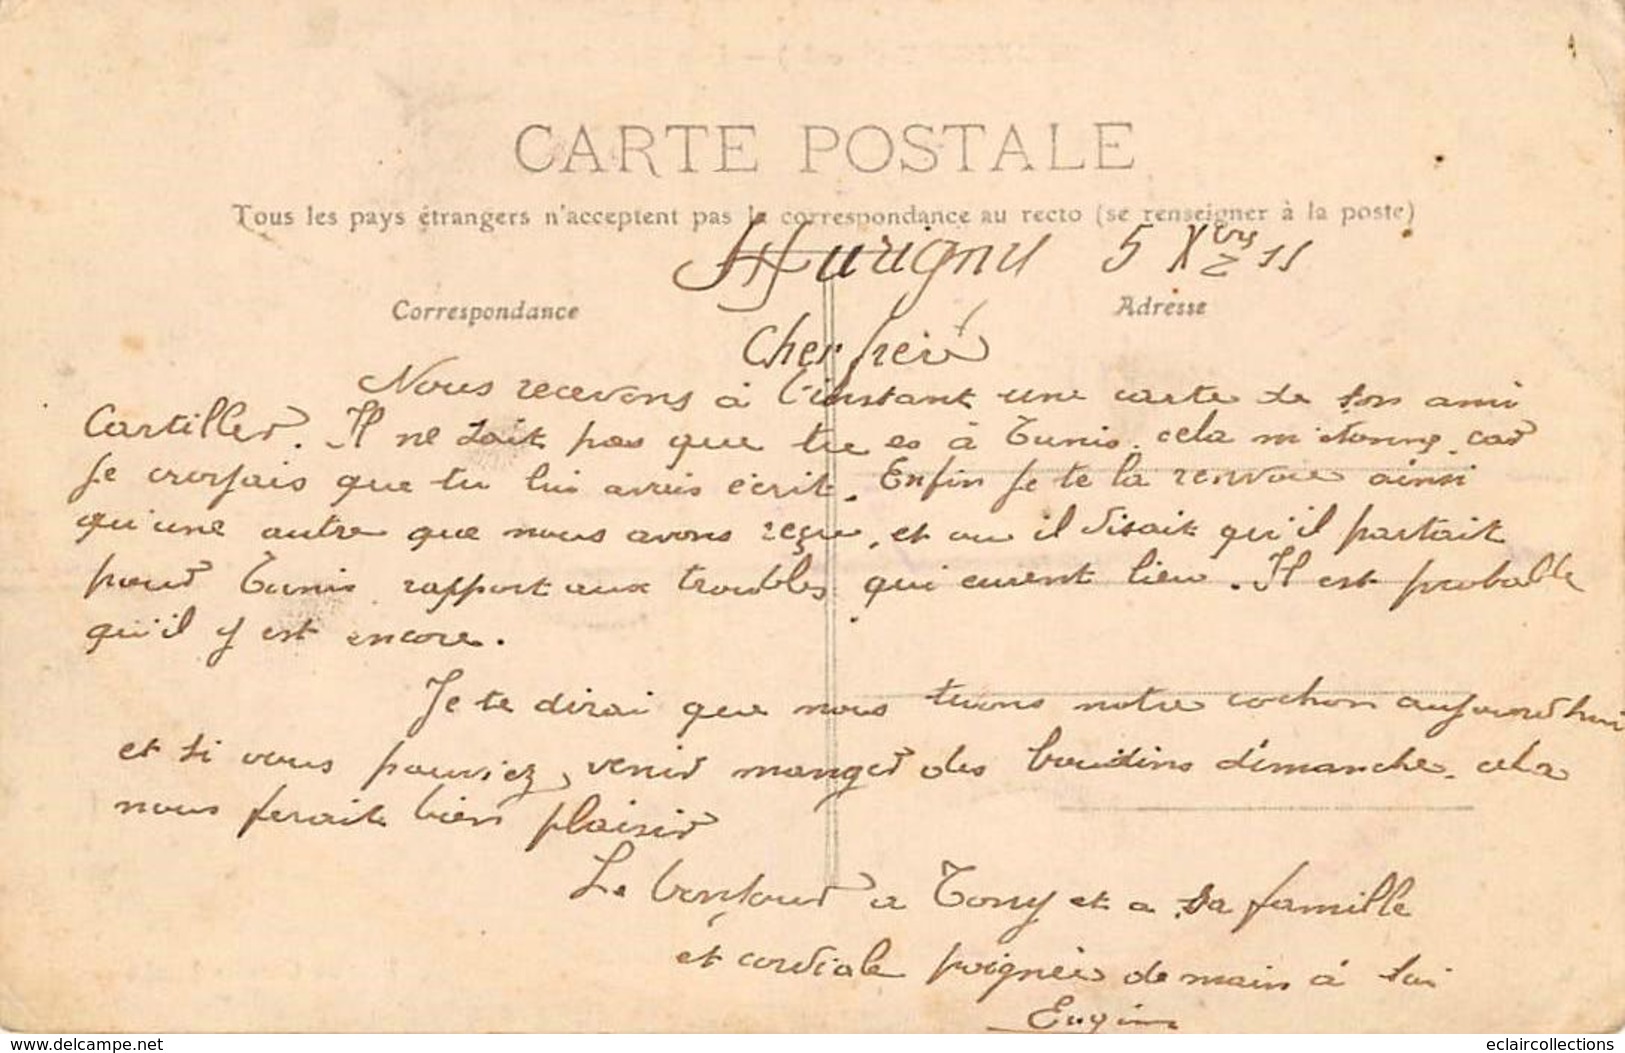 CARTE POSTALE
Tous les pays étrangers n'acceptent pas la correspondance au recto (se renseigner à la poste)
Hurigny 5 Xbre 11
Correspondance Adresse
Cher frère
Nous recevons à l'instant une carte de ton ami
Cartiller. Il ne sait pas que tu es à Tunis. cela m'étonne, car
je croyais que tu lui avais écrit. Enfin je te la renvoie ainsi
qu'une autre que nous avons reçue, et ou il disait qu'il partait
pour Tunis rapport aux troubles qui eurent lieu. Il est probable
qu'il y est encore.
Je te dirai que nous tuons notre cochon aujourd'hui
et si vous pouviez, venir manger des boudins dimanche. cela
nous ferait bien plaisir
Le bonjour a Tony et a sa famille
et cordiale poignée de main à toi
Eugène
delcampe.net
eclaircollections